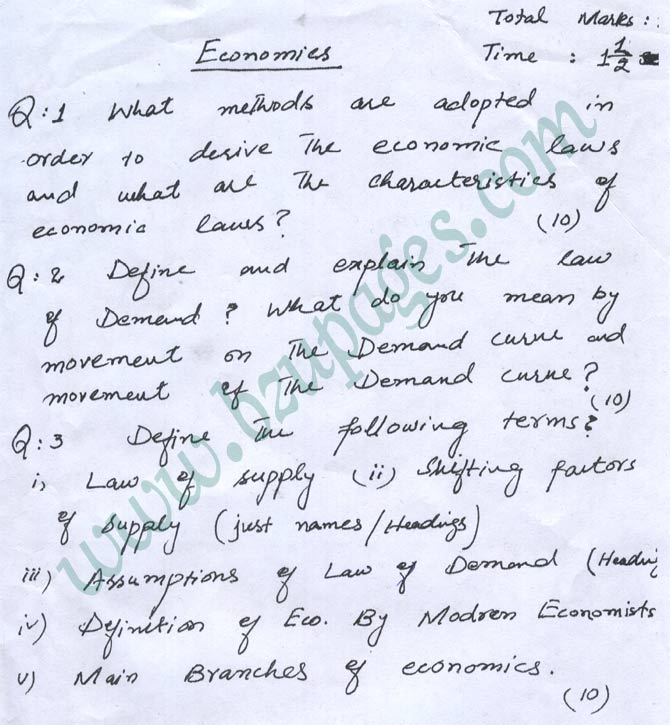 Total Marks:
Economics
Time : 1 1/2
Q:1 What methods are adopted in
order to desive the economic laws
and what are the characteristics of
economic laws?
(10)
Q:2 Define and explain the law
of Demand? What do you mean by
movement on the Demand curve and
movement of the Demand curve?
(10)
Q:3 Define the following terms?
i, Law of supply (ii) Shifting factors
of supply (just names/Headings)
iii) Assumptions of Law of Demand (Heading
iv) Definition of Eco. By Modren Economists
v) Main Branches of economics.
(10)
www.bzupages.com